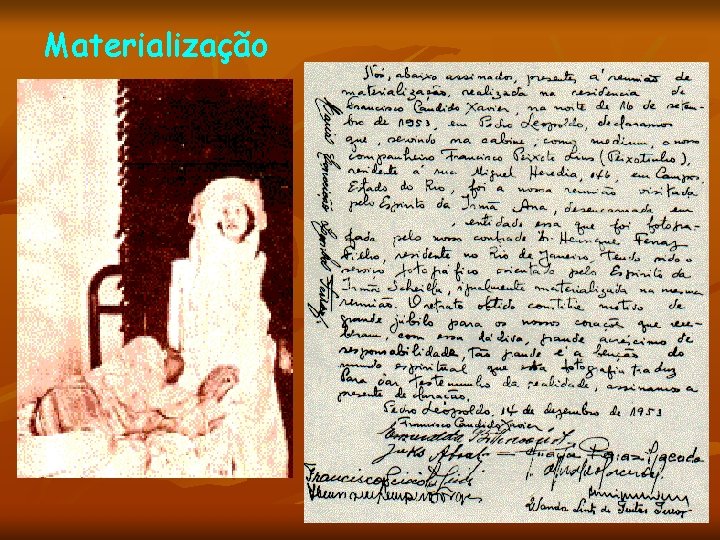 Materialização
Nós, abaixo assinados, presentes á reunião de
materialização, realizada na residencia de
Francisco Candido Xavier, na noite de 16 de setem-
bro de 1953, em Pedro Leopoldo, declaramos
que, servindo na cabine, como medium, o nosso
companheiro Francisco Peixoto Lins (Peixotinho),
residente á rua Miguel Heredia, em Campos,
Estado do Rio, foi a nossa reunião visitada
pelo Espirito da Irmã Ana, desencarnada em
, entidade essa que foi fotogra-
fada pelo nosso confrade Dr. Henrique Ferraz
Filho, residente no Rio de Janeiro, tendo sido o
serviço fotográfico orientado pelo Espirito da
Irmão Scheilla, igualmente materializada na mesma
reunião. O retrato obtido constitue motivo de
grande júbilo para os nossos corações que rece-
beram, com essa dádiva, grande acrescimo de
responsabilidade, tão grande é a benção do
mundo espiritual que esta fotografia traduz
Para dar testemunho da realidade, assinamos a
presente declaração.
Pedro Leopoldo, 14 de dezembro de 1953
Francisco Candido Xavier